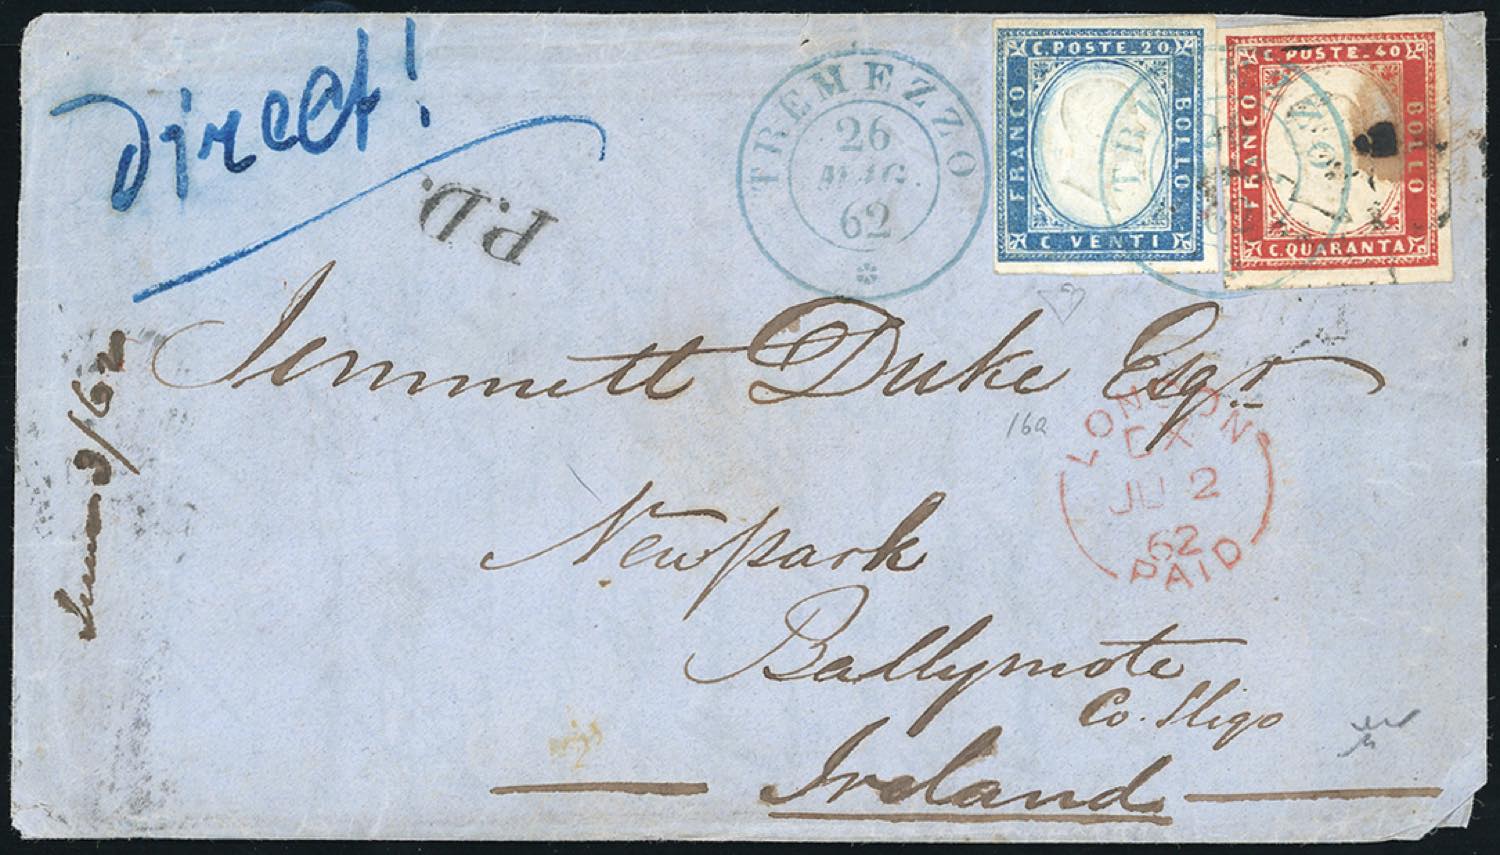 Direct!
P.D.
TREMEZZO
26
MAG
62
C. POSTE. 20
FRANCO
BOLLO
C. VENTI
C. POSTE. 40
FRANCO
BOLLO
C. QUARANTA
Jemmett Duke Esqr.
16a
LONDON
CX
JU 2
62
PAID
Newpark
Ballymote
Co. Sligo
Ireland
3/62